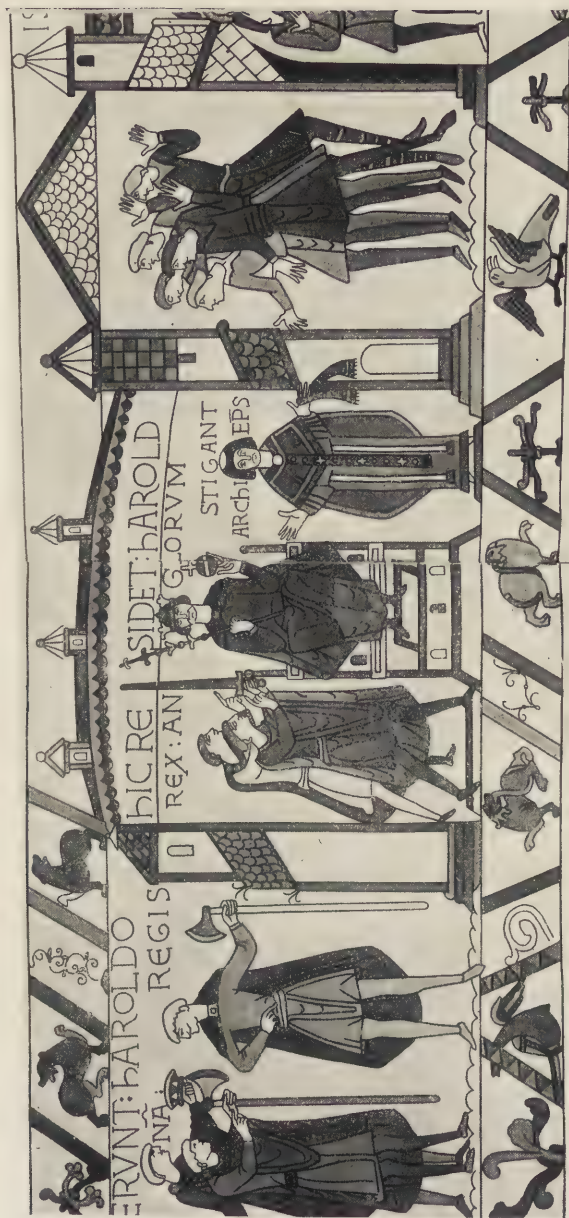 ERVNT: hAROLDO
NĀ REGIS
hIC RE SIDET: hAROLD
REX: AN GLORVM
STIGANT
ARChI EPS
IS